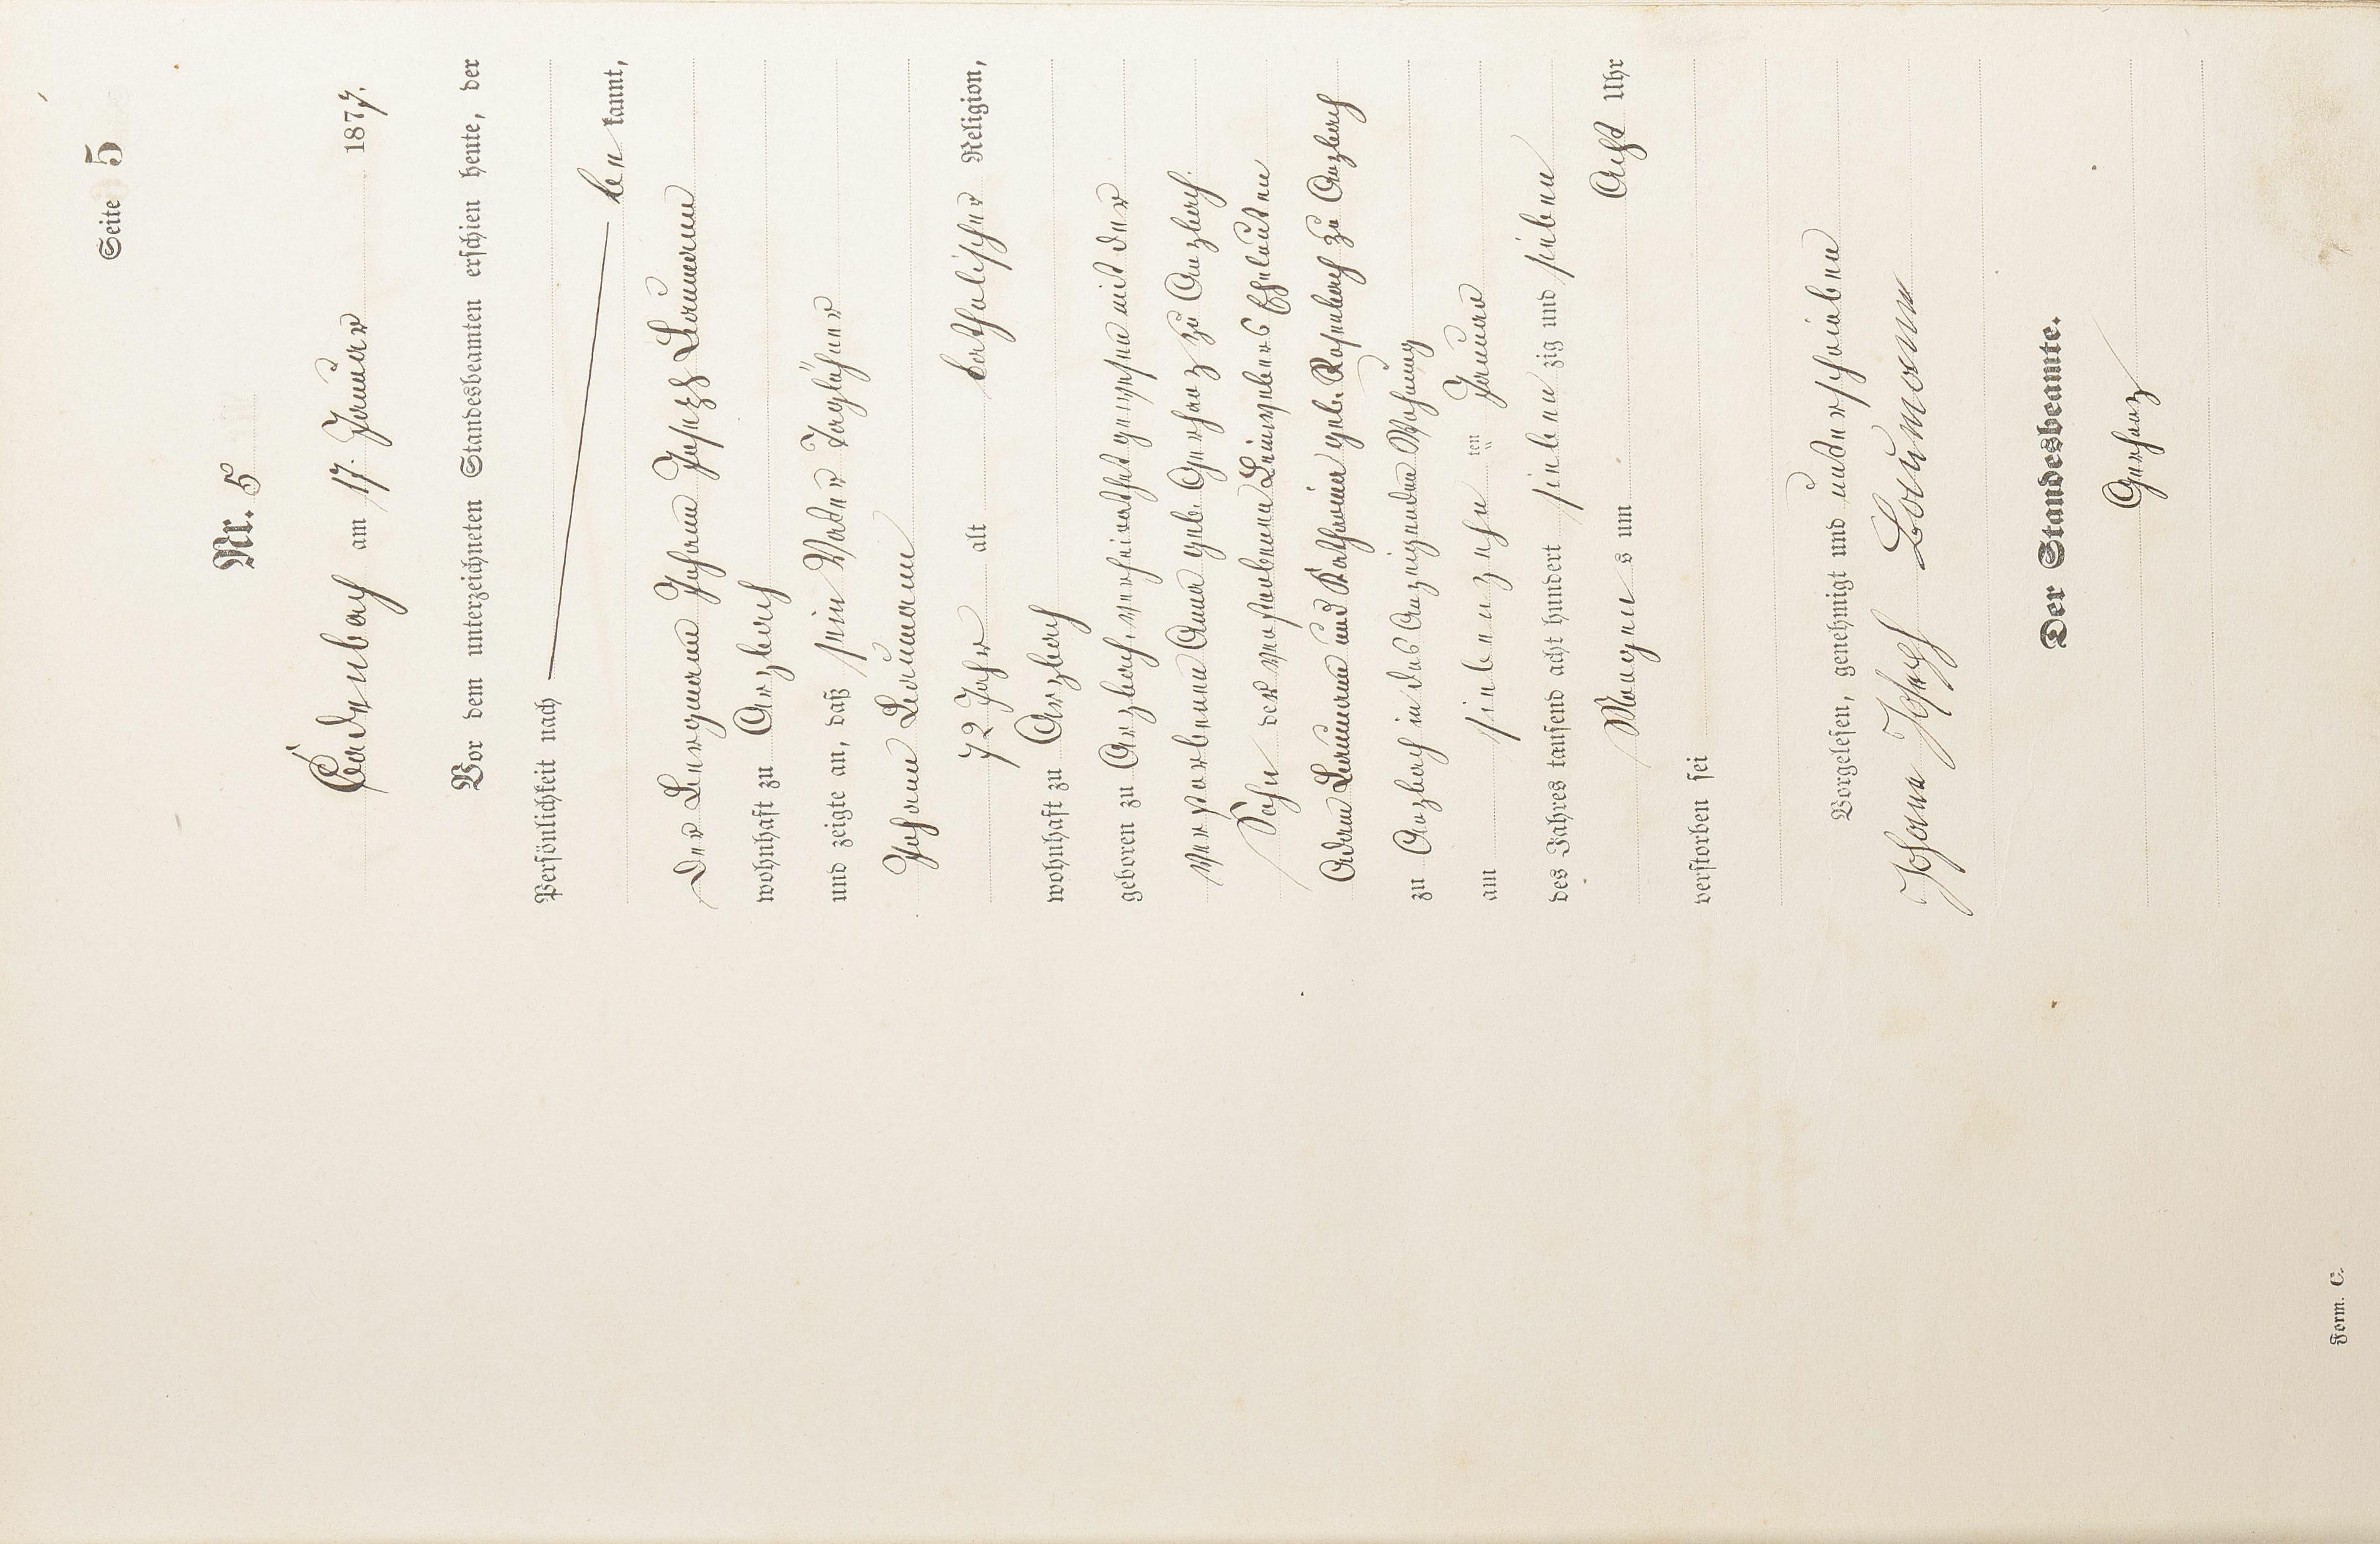 Seite 5
Nr. 5
Cadenbach am 17. Januar 1877.
Vor dem unterzeichneten Standesbeamten erschien heute, der
Persönlichkeit nach
be kannt,
der Bergmann Johann Joseph Baumann
wohnhaft zu Arzbach
und zeigte an, daß sein Vater Taglöhner
Johann Baumann
72 Jahre alt katholischer Religion,
wohnhaft zu Arzbach
geboren zu Arzbach, verheirathet gewesen mit der
verstorbenen Anna geb. Gerharz zu Arzbach.
Sohn der verstorbenen Leinwebers Eheleuten
Adam Baumann und Katharina geb. Rosenbach zu Arzbach
zu Arzbach in des Anzeigenden Wohnung
am siebenzehn ten Januar
des Jahres tausend acht hundert sieben zig und sieben
Morgen s um Acht Uhr
verstorben sei
Vorgelesen, genehmigt und unterschrieben
Johann Joseph Baumann
Der Standesbeamte.
Gerharz
Form. C.